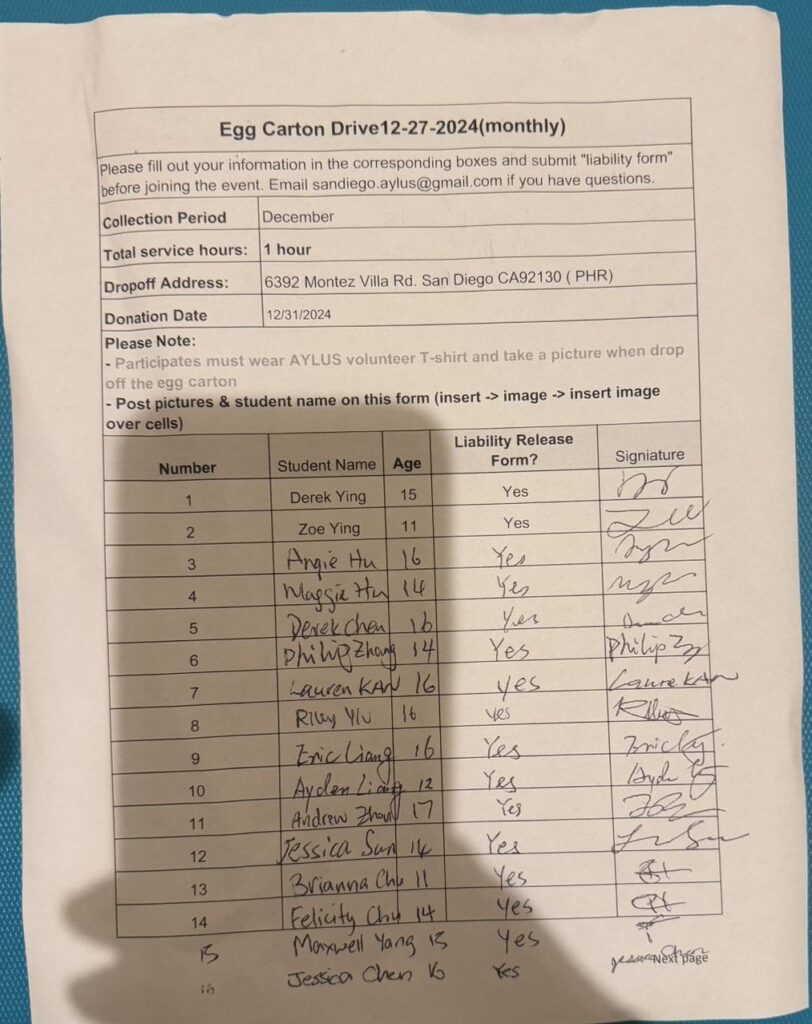 Egg Carton Drive12-27-2024(monthly)
Please fill out your information in the corresponding boxes and submit "liability form"
before joining the event. Email sandiego.aylus@gmail.com if you have questions.
Collection Period December
Total service hours: 1 hour
Dropoff Address: 6392 Montez Villa Rd. San Diego CA92130 ( PHR)
Donation Date 12/31/2024
Please Note:
- Participates must wear AYLUS volunteer T-shirt and take a picture when drop
off the egg carton
- Post pictures & student name on this form (insert -> image -> insert image
over cells)
Number Student Name Age Liability Release Form? Signiature
1 Derek Ying 15 Yes
2 Zoe Ying 11 Yes
3 Angie Hu 16 Yes
4 Maggie Hu 14 Yes
5 Derek Chen 16 Yes
6 Philip Zhang 14 Yes Philip
7 Lauren KAN 16 yes
8 Riley Yiu 16 yes
9 Eric Liang 16 Yes
10 Ayden Liang 12 Yes
11 Andrew Zhou 17 Yes
12 Jessica Sun 14 Yes
13 Brianna Chu 11 Yes
14 Felicity Chu 14 Yes
15 Maxwell Yang 15 Yes
16 Jessica Chen Yes Jessica Chen
Next page